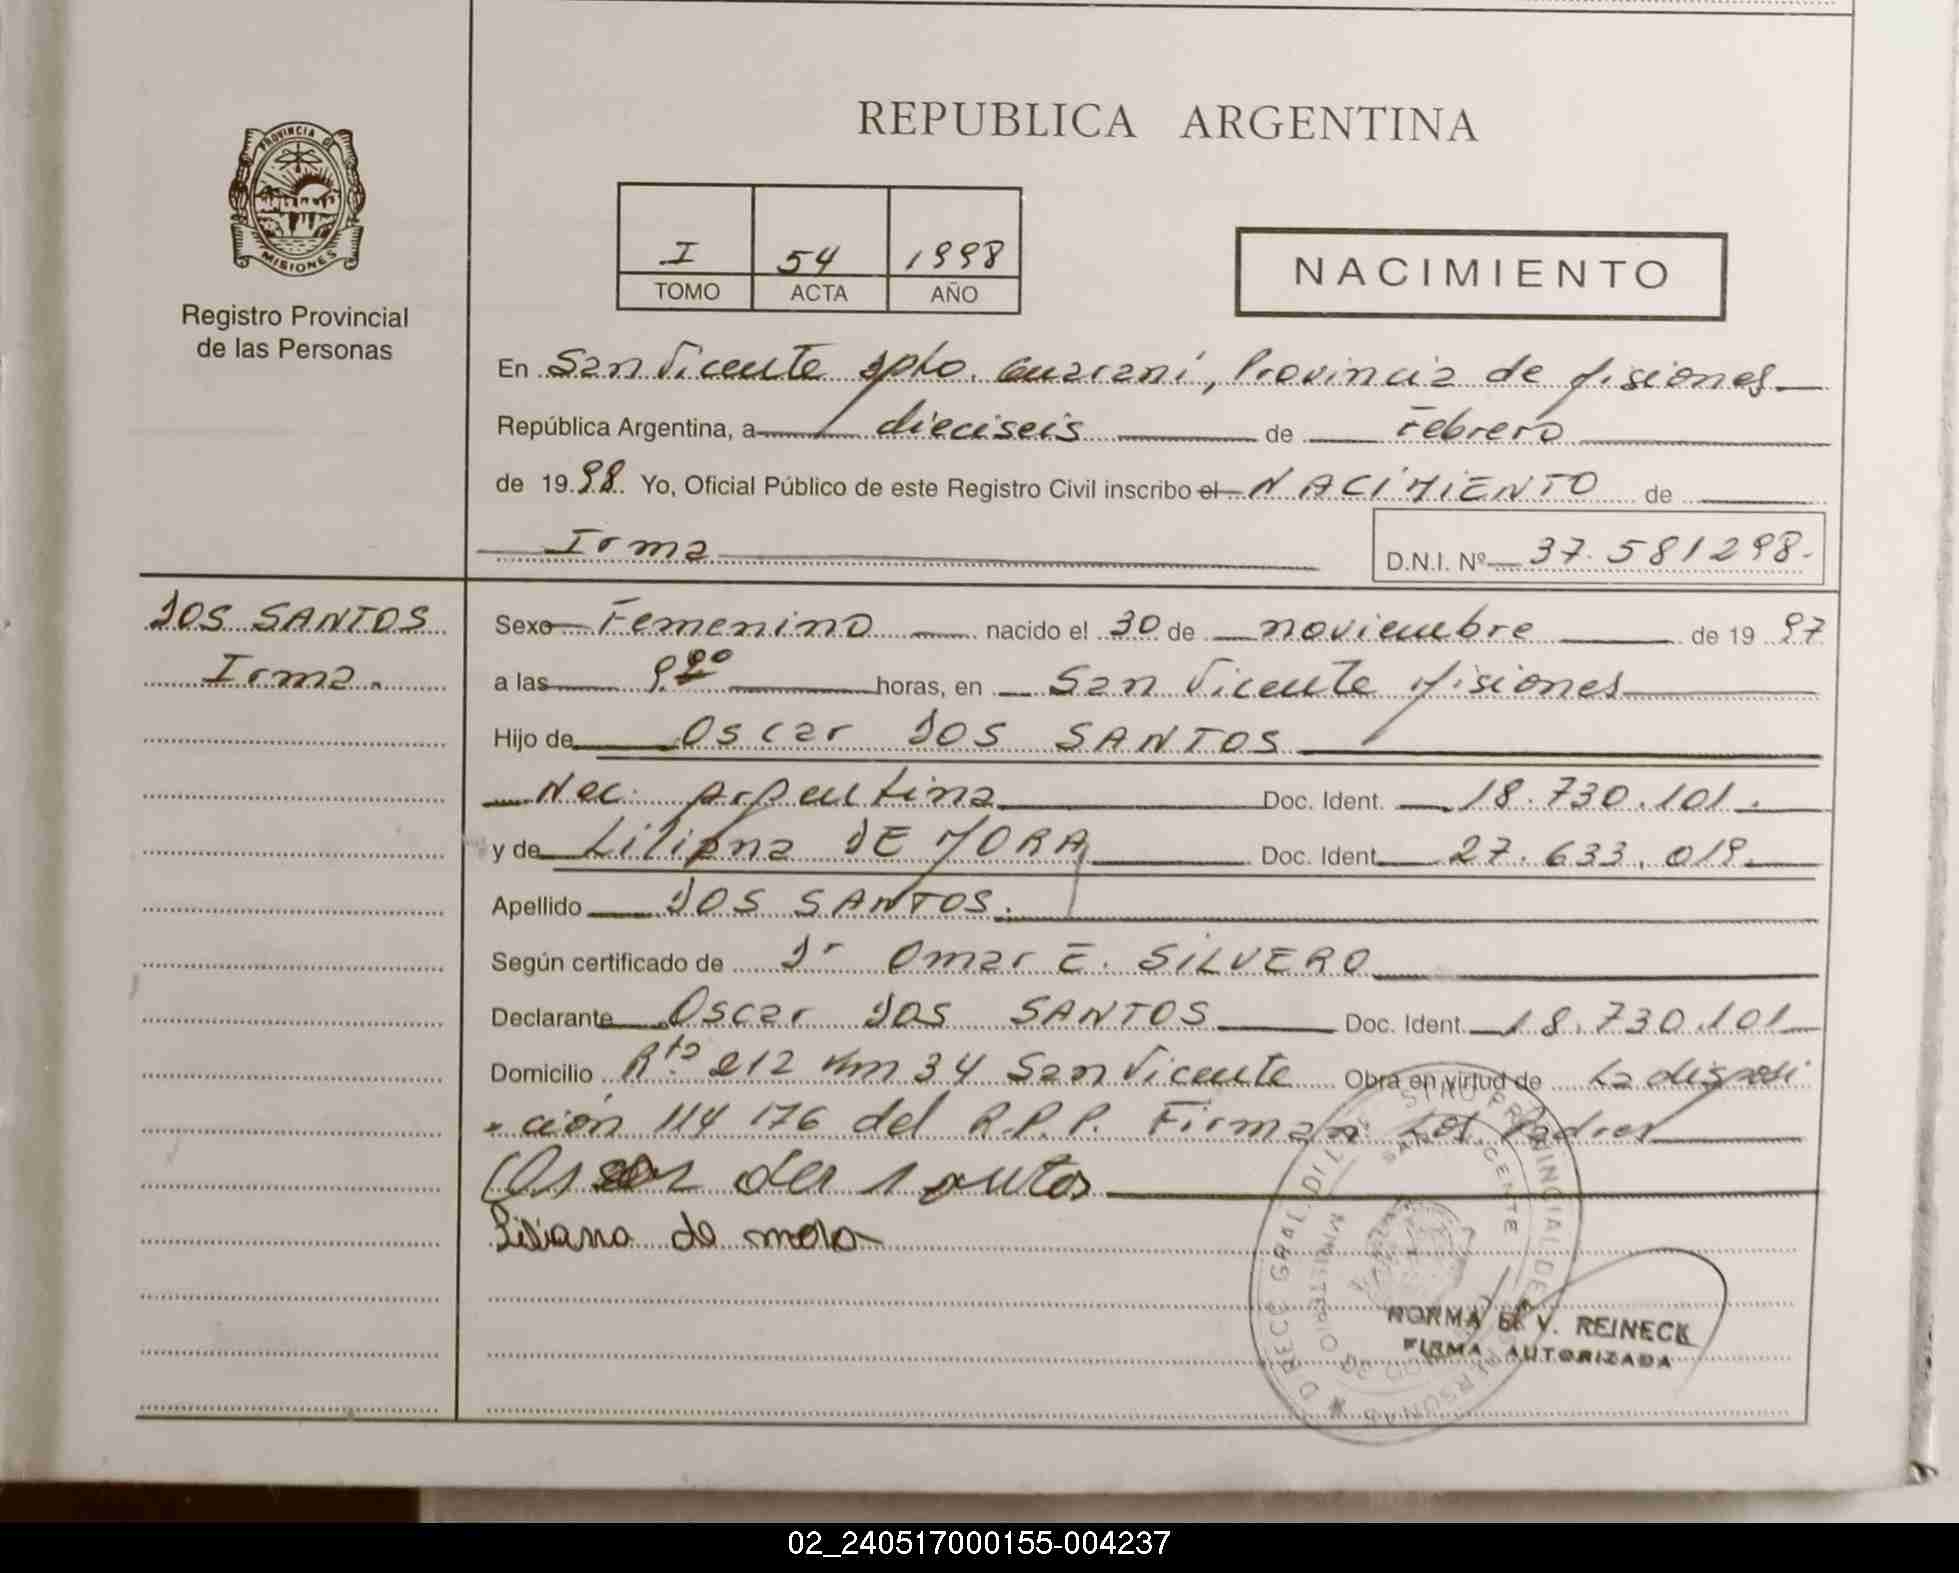 REPUBLICA ARGENTINA
PROVINCIA DE
MISIONES
Registro Provincial
de las Personas
I 54 1998
TOMO ACTA AÑO
NACIMIENTO
En San Vicente Dpto. Guaraní, Provincia de Misiones
República Argentina, a dieciseis de Febrero
de 1998 Yo, Oficial Público de este Registro Civil inscribo el NACIMIENTO de
Irma D.N.I. Nº 37.581298.
DOS SANTOS
Irma.
Sexo Femenino nacido el 30 de noviembre de 1997
a las horas, en San Vicente Misiones
Hijo de Oscar DOS SANTOS
Nac. Argentina Doc. Ident. 18.730.101.
y de Liliana DE MORA Doc. Ident. 27.633.019
Apellido DOS SANTOS.
Según certificado de Dr Omar E. SILVERO
Declarante Oscar DOS SANTOS Doc. Ident. 18.730.101
Domicilio Rta 212 Km 34 San Vicente Obra en virtud de La disposi
ción 114 176 del R.P.P. Firman: Los Padres
dos santos
Liliana de mora
NORMA V. REINECK
FIRMA AUTORIZADA
02_240517000155-004237